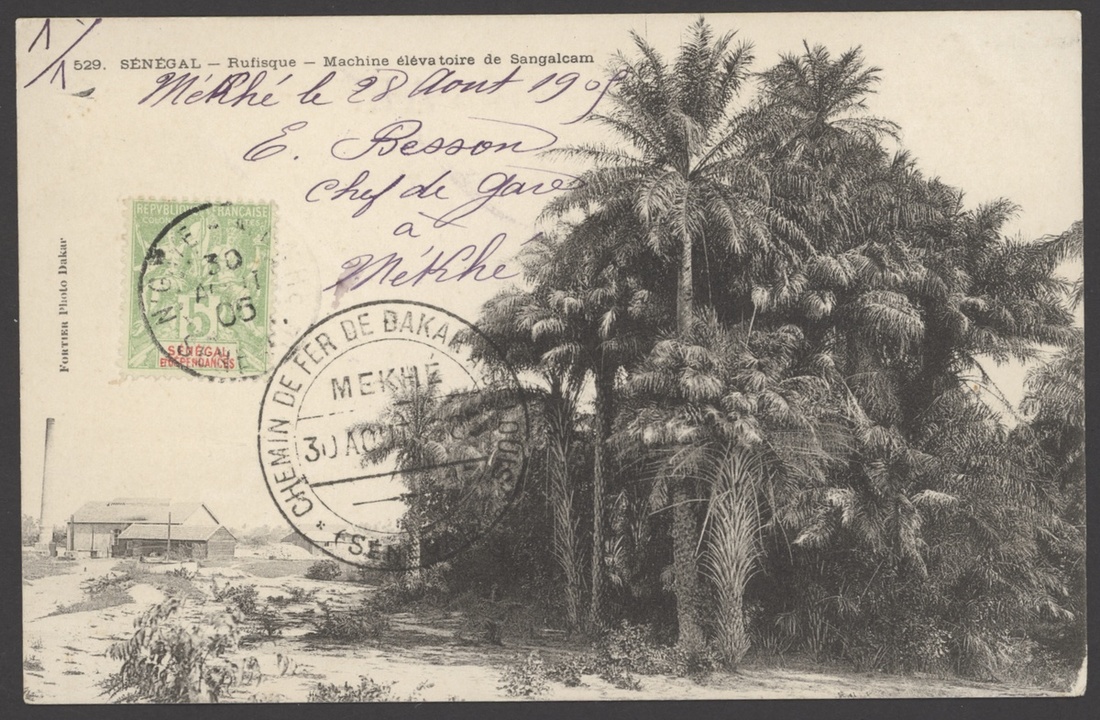 1/1
529. SÉNÉGAL — Rufisque — Machine élévatoire de Sangalcam
Mékhé le 28 Aout 1905
E. Besson
chef de gare
à
Mékhé
FORTIER Photo Dakar
REPUBLIQUE FRANÇAISE
COLONIES
30
05
5
SÉNÉGAL
ET DÉPENDANCES
CHEMIN DE FER DE DAKAR
MEKHÉ
30 AOUT